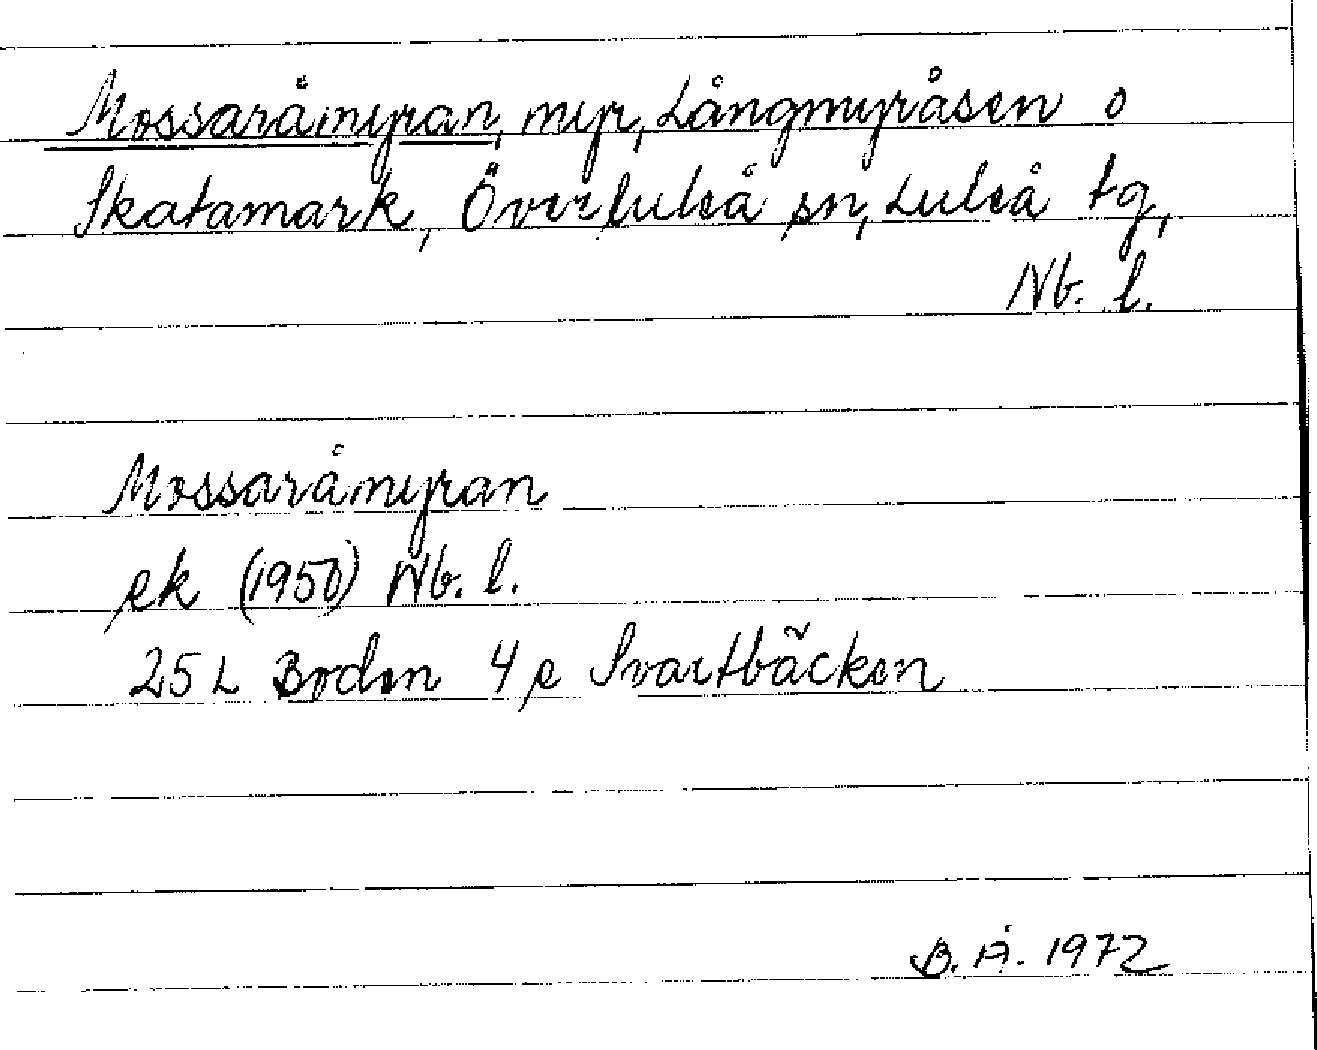 Mossaråmyran, myr, Långmyråsen o
Skatamark, Överluleå sn, Luleå tg,
Nb. l.
Mossaråmyran
ek (1950) Nb. l.
25 L Boden 4 e Svartbäcken
B. Å. 1972